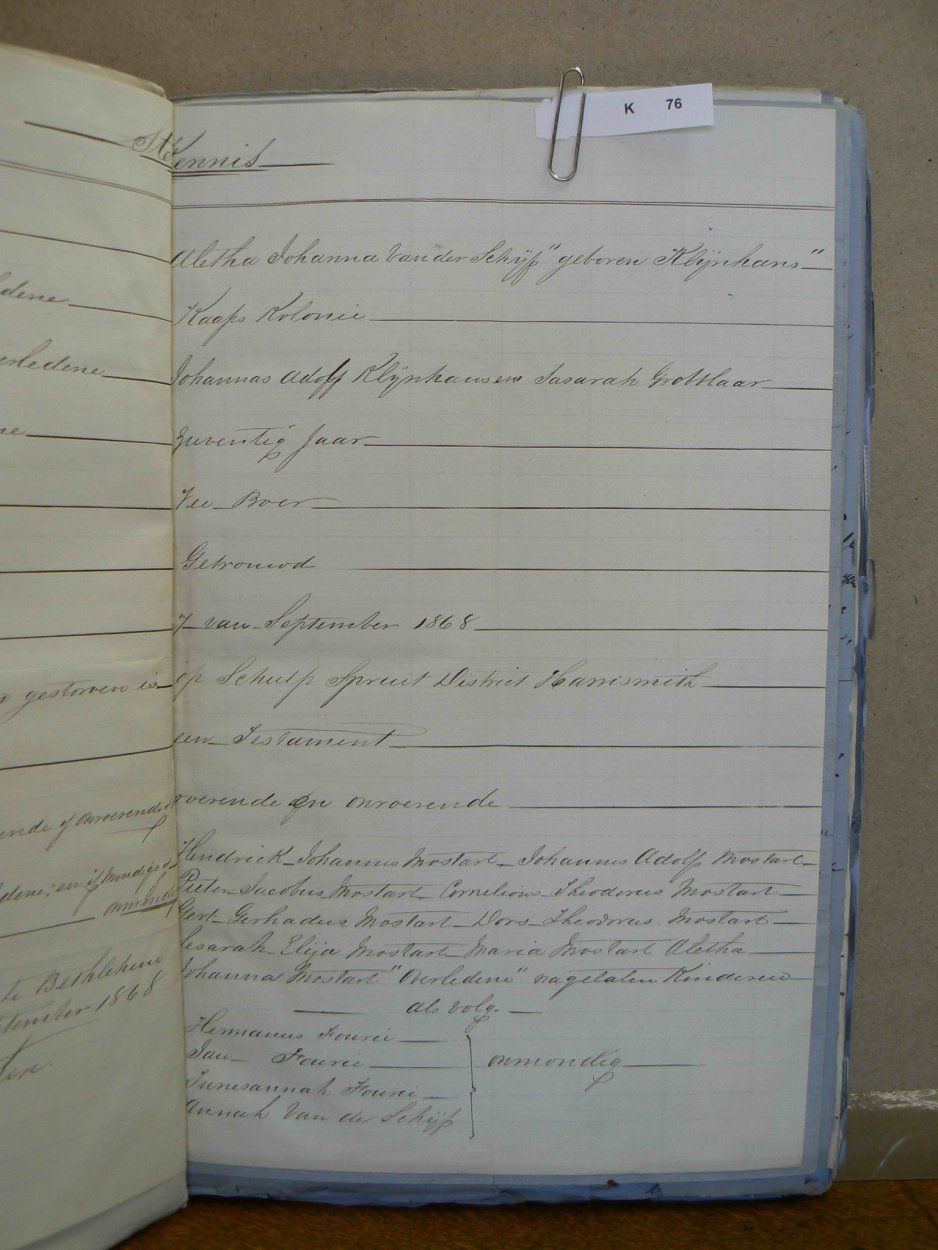 K 76
Kennis
Aletha Johanna Van der Schijf "geboren Klijnhans"
dene
Kaaps Kolonie
erledene
Johannas Adolf Klijnhans en Sasarah Grobblaar
ne
Zeventig Jaar
Vee Boer
Getrouwd
7 van September 1868
gestorven is
op Schulp Spruit District Harrismith
een Testament
ende of onroerende
roerende en onroerende
Hendrick Johannes Mostart Johannes Adolf Mostart
ledene; en if mindig of
Pieter Jacobus Mostart Cornelious Theodorus Mostart
onmondig
Gert Gerhadus Mostart Dors Theodorus Mostart
Sesarah Elija Mostart Maria Mostart Aletha
te Bethlehem
Johanna Mostart "Overledene" nagelaten Kinderen
tember 1868
als volg
Hermanus Fourie
Jan Fourie
onmondig
Junesannah Fourie
Annah Van de Schijf